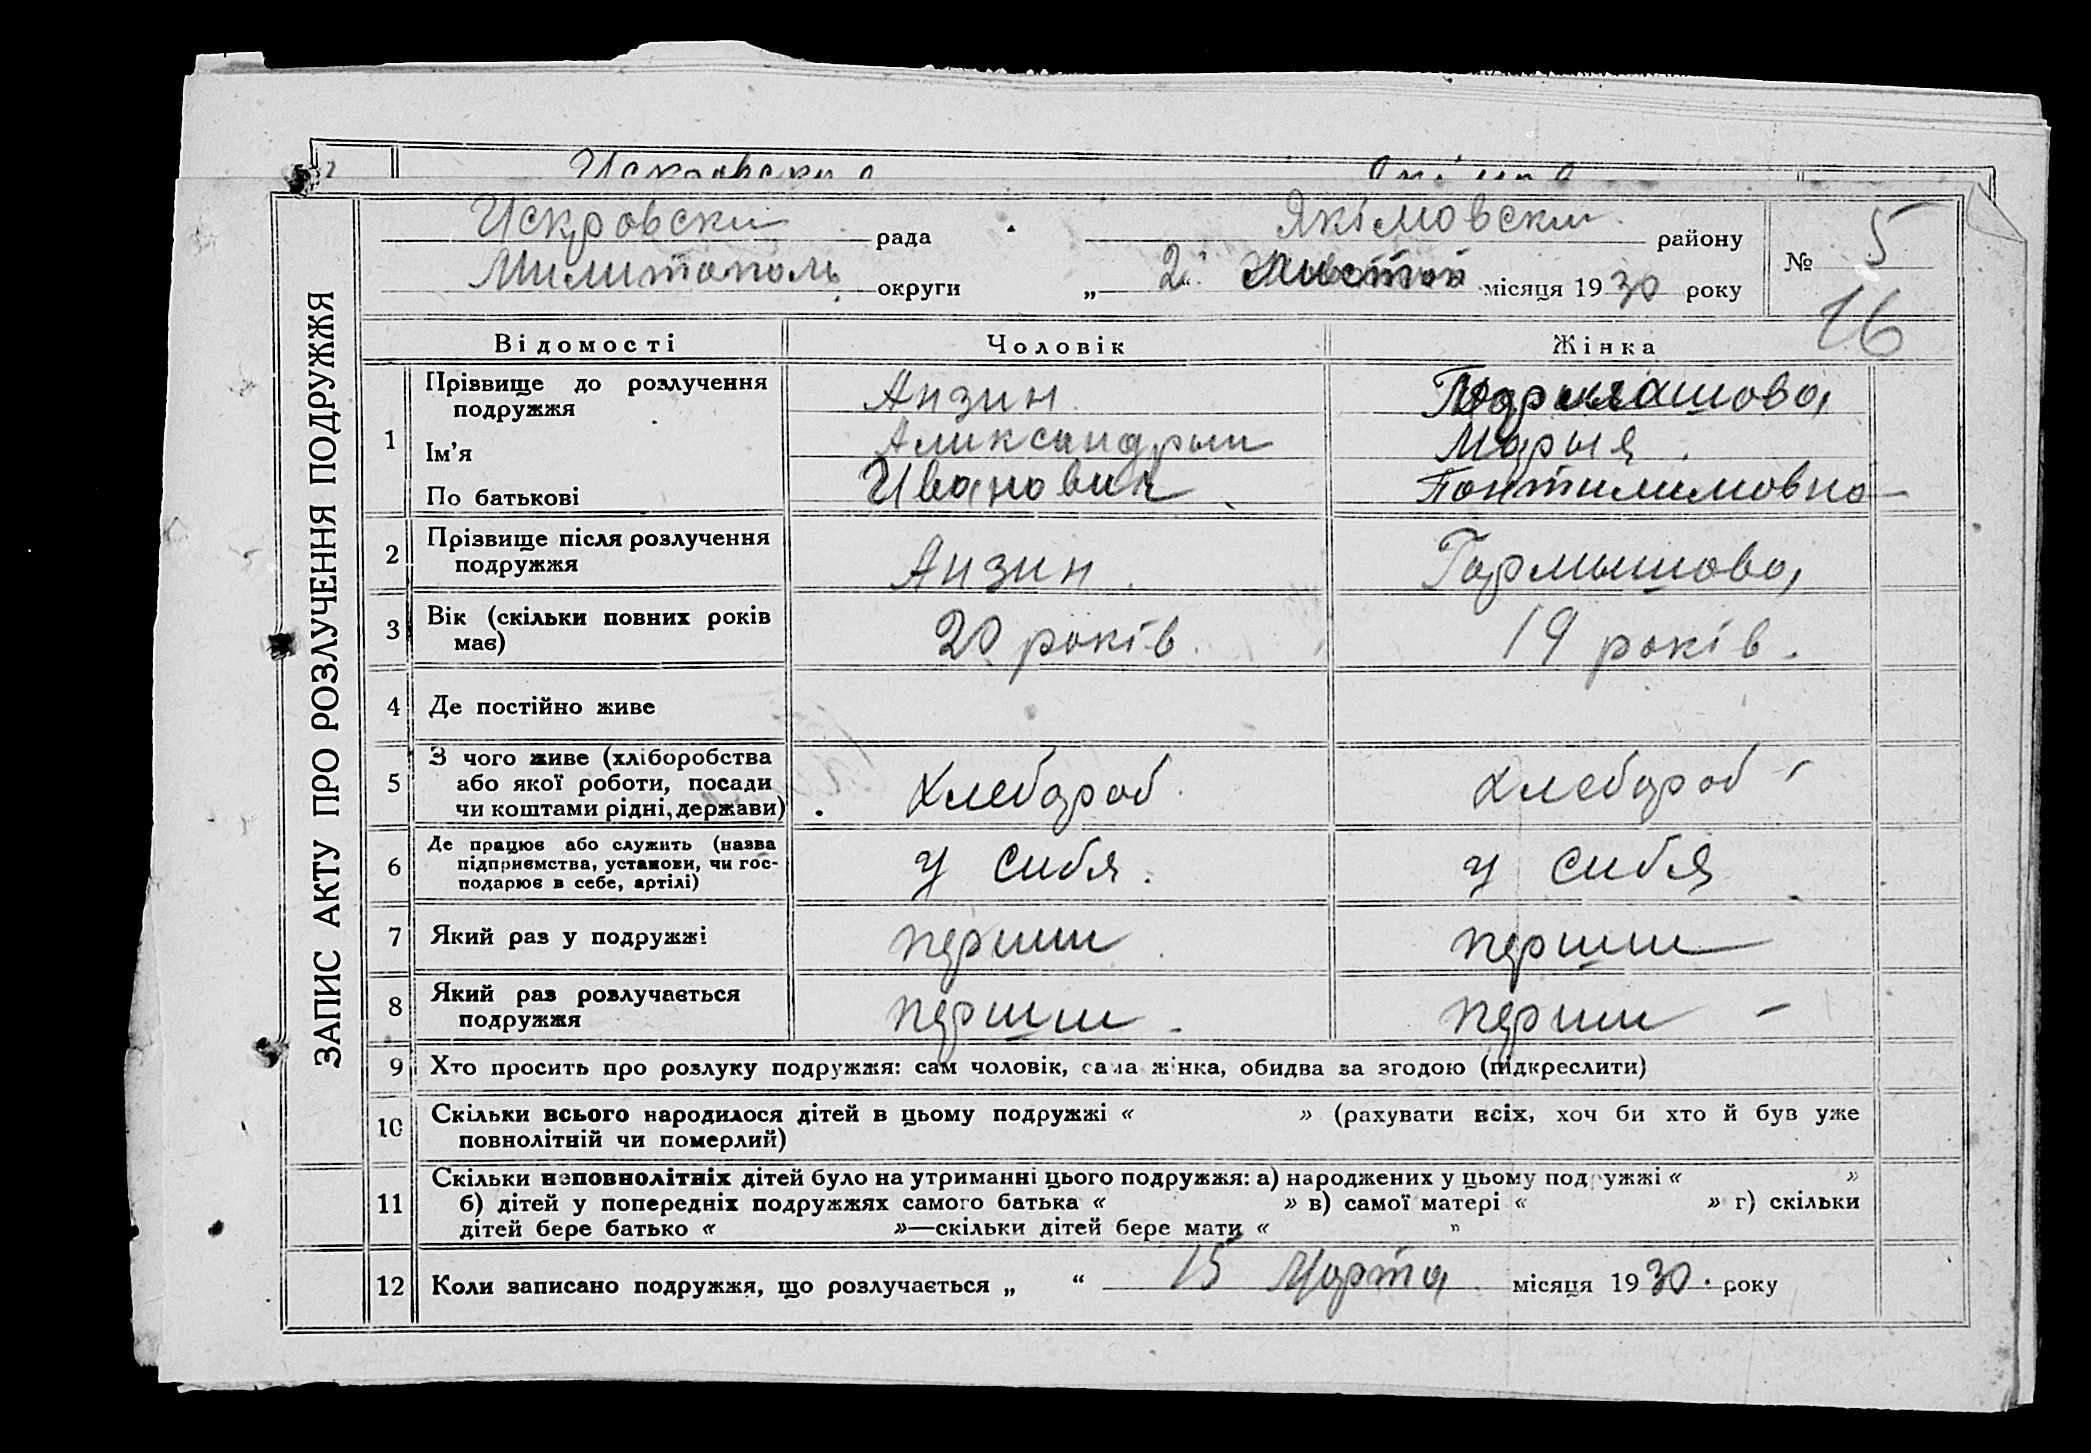 Искровски рада Якімовски району
Милитополь округи „ 2 місяця 1930 року № 5
16
ЗАПИС АКТУ ПРО РОЗЛУЧЕННЯ ПОДРУЖЖЯ
Відомості Чоловік Жінка
1 Прізвище до розлучення подружжя Анзин
Ім'я Аликсандрыи Марыя
По батькові Иванович Понтилимовно
2 Прізвище після розлучення подружжя Анзин Гармышова
3 Вік (скільки повних років має) 20 років 19 років.
4 Де постійно живе
5 З чого живе (хліборобства або якої роботи, посади чи коштами рідні, держави) Хлебороб Хлебороб
6 Де працює або служить (назва підприємства, установи, чи господарює в себе, артілі) у сибя. у сибя
7 Який раз у подружжі перши перши
8 Який раз розлучається подружжя перши перши
9 Хто просить про розлуку подружжя: сам чоловік, сама жінка, обидва за згодою (підкреслити)
10 Скільки всього народилося дітей в цьому подружжі « » (рахувати всіх, хоч би хто й був уже
повнолітній чи померлий)
11 Скільки неповнолітніх дітей було на утриманні цього подружжя: а) народжених у цьому подружжі « »
б) дітей у попередніх подружжях самого батька « » в) самої матері « » г) скільки
дітей бере батько « »—скільки дітей бере мати « »
12 Коли записано подружжя, що розлучається „ “ 15 Марта місяця 1930. року